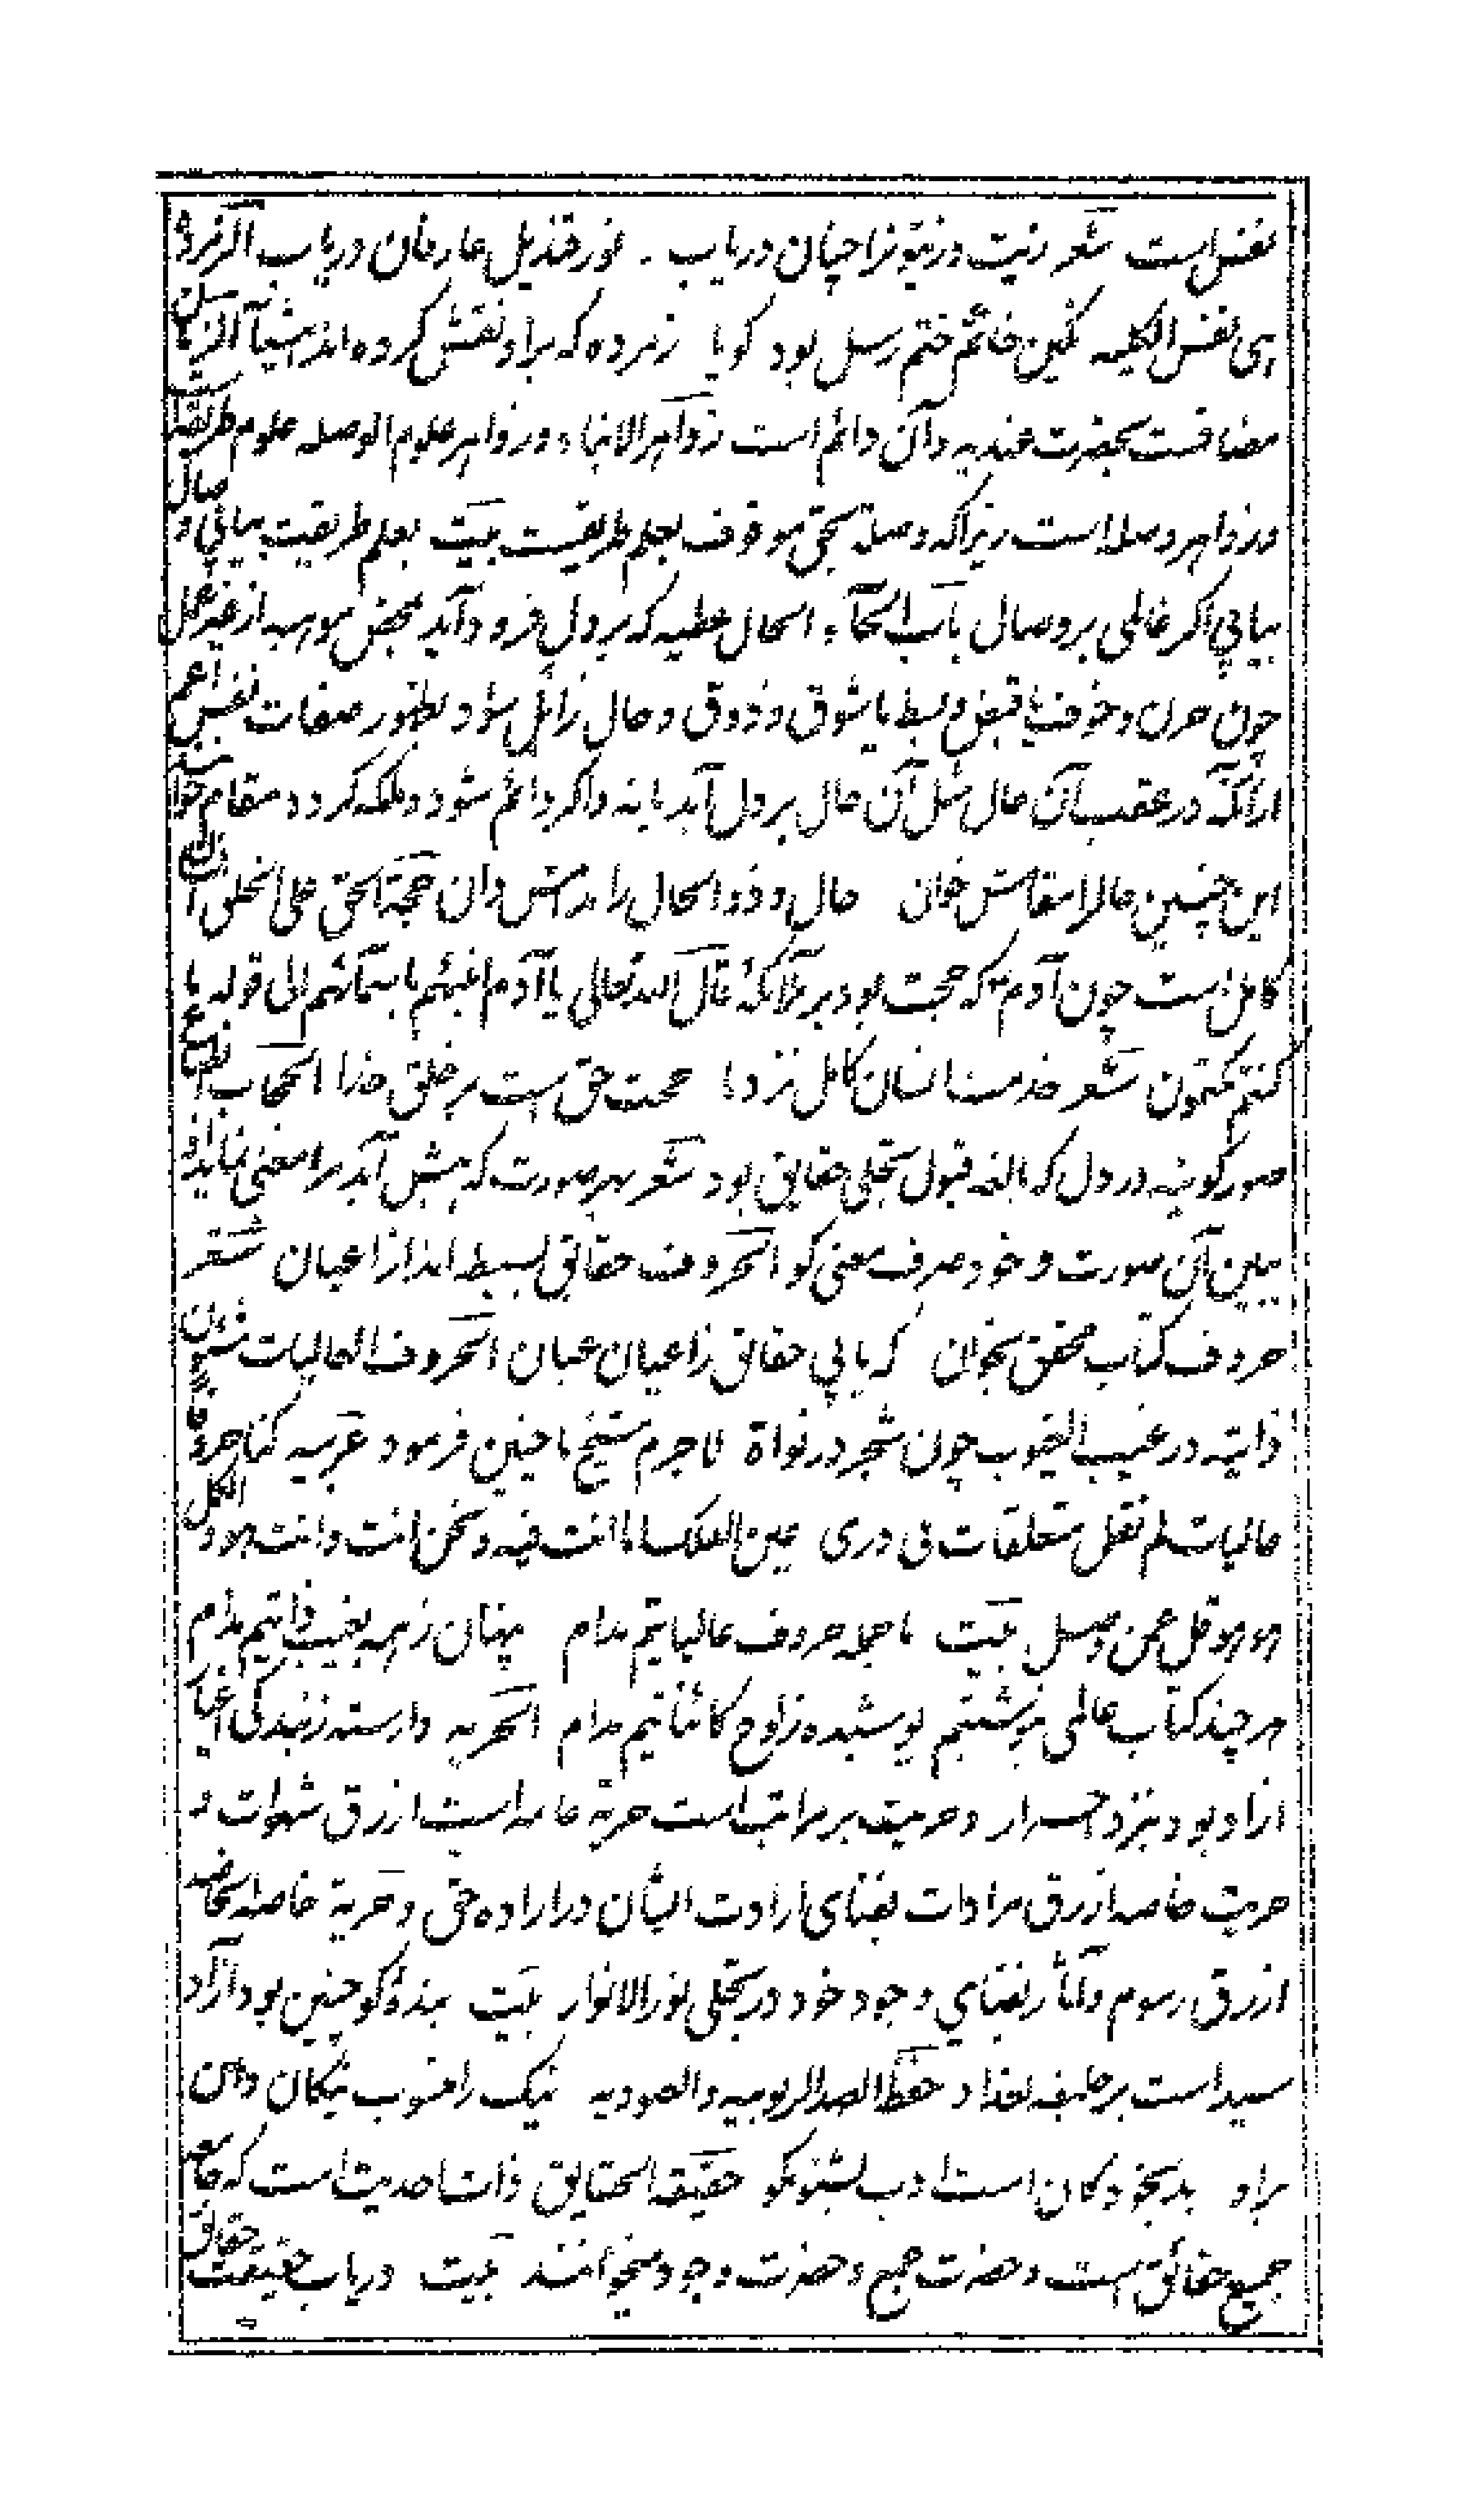 نفس است شعر زیت و زیتونه زاجیان دریاب . نور قندیل عارفان دریاب الزمردة
ای نفس الکلیه نگین خاتم ختم رسل بود گویا زمرده که براو نقش کرده اند اشیا آلزمان
مضافست بحضرت عندیه و آن دائم است زواهر الانباء و زواهر علوم الوصله علوم طریقت است
و زواهر وصلا است زیراکه وصلة بحق موقوف بعلم طریقست بیت بعلم طریقت بیابی وصال
بیابی اگر عالمی بر وصال باب الحآء الحال عطیه که بردل فرود آید بمحض موهبه از غیر عمل
چون حزن و خوف یا قبض و بسط یا شوق و ذوق و حال زائل شود بظهور صفات نفس اعم
ازآنکه در عقب آن حال مثل آن حال بردل آید یا نه و اگر دائم شود و ملکه گردد مقام خوانند
این چنین حالا مقامش خوان حال و ذو الحال را بدانش دان حجة الحق علی الخلق انسان
کامل است چون آدم که حجت بود بر ملآئکه قال الله تعالی یا آدم انبئهم باسمآئهم الی قوله ما
کنتم تکتمون شعر خدمت انسان کامل نزد ما حجت حق است بر خلق خدا الحجاب انطباع
صور کونیه در دل که مانعه قبول تجلی حقایق بود شعر بهر صورت که پیش آید ترا معنی نماید او
ببین آن صورت و خود صرف معنی گو الحروف حقائق بسیطه اند از اعیان شعر
حروف کتاب محقق بخوان که یابی حقائق ز اعیان عیان الحروف العالیات شیون
ذاتیه در غیب الغیوب چون شجر در نواة لاجرم شیخ ما چنین فرمود عربیه کنا حروفا
عالیات لم نقل متعلقات فی ذری عین العلک انا انت فیه و نحن انت و انت هو الکل
هو هو قل عمن وصل بیت ما جمله حروف عالیاتیم مدام پنهان ز همه بغیب ذاتیم مدام
هر چند کتاب عالمی بنوشتیم پوشیده ز لوح کائناتیم مدام الحریه وارسته ز بندگی اغیار
آزاد بود بنزد احرار و حریت بر مراتب است حریة عامه است از رق شهوات و
حریت خاصه از رق مرادات بفنای ارادت ایشان در اراده حق و حریة خاصه الخاصه
از رق رسوم و آثار بفنای وجود خود در تجلی نور الانوار بیت بنده کو چنین بود آزاد
سید است بر خلیفه بغداد حفظ العهد الربوبیه والعبودیه نیک را منسوب نیکان دان
براو بد بخود کان است ادب بشنو نکو حقیقة الحقایق ذات احدیت است که جامع
جمیع حقائق است و حضرت جمع و حضرت وجود میخوانند بیت دریاب حقیقت حقائق